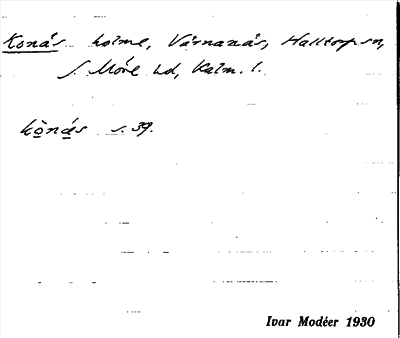 Konäs holme, Värnanäs, Halltorp sn,
S. Möre hd, Kalm. l.
kònäs s. 39.
Ivar Modéer 1930